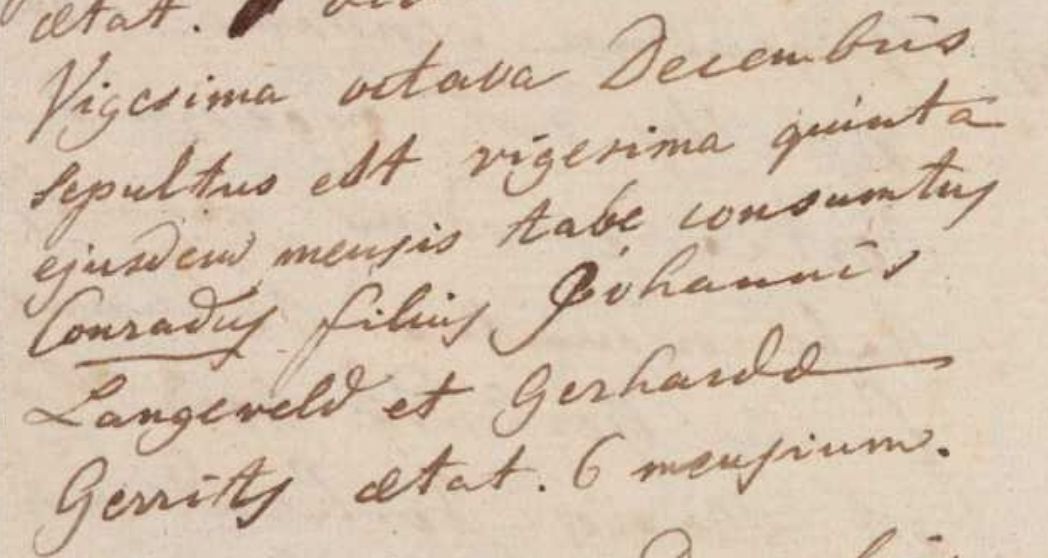 ætat.
Vigesima octava Decembris
sepultus est vigesima quinta
ejusdem mensis tabe consumtus
Conradus filius Johannis
Langeveld et Gerhardæ
Gerrits ætat. 6 mensium.